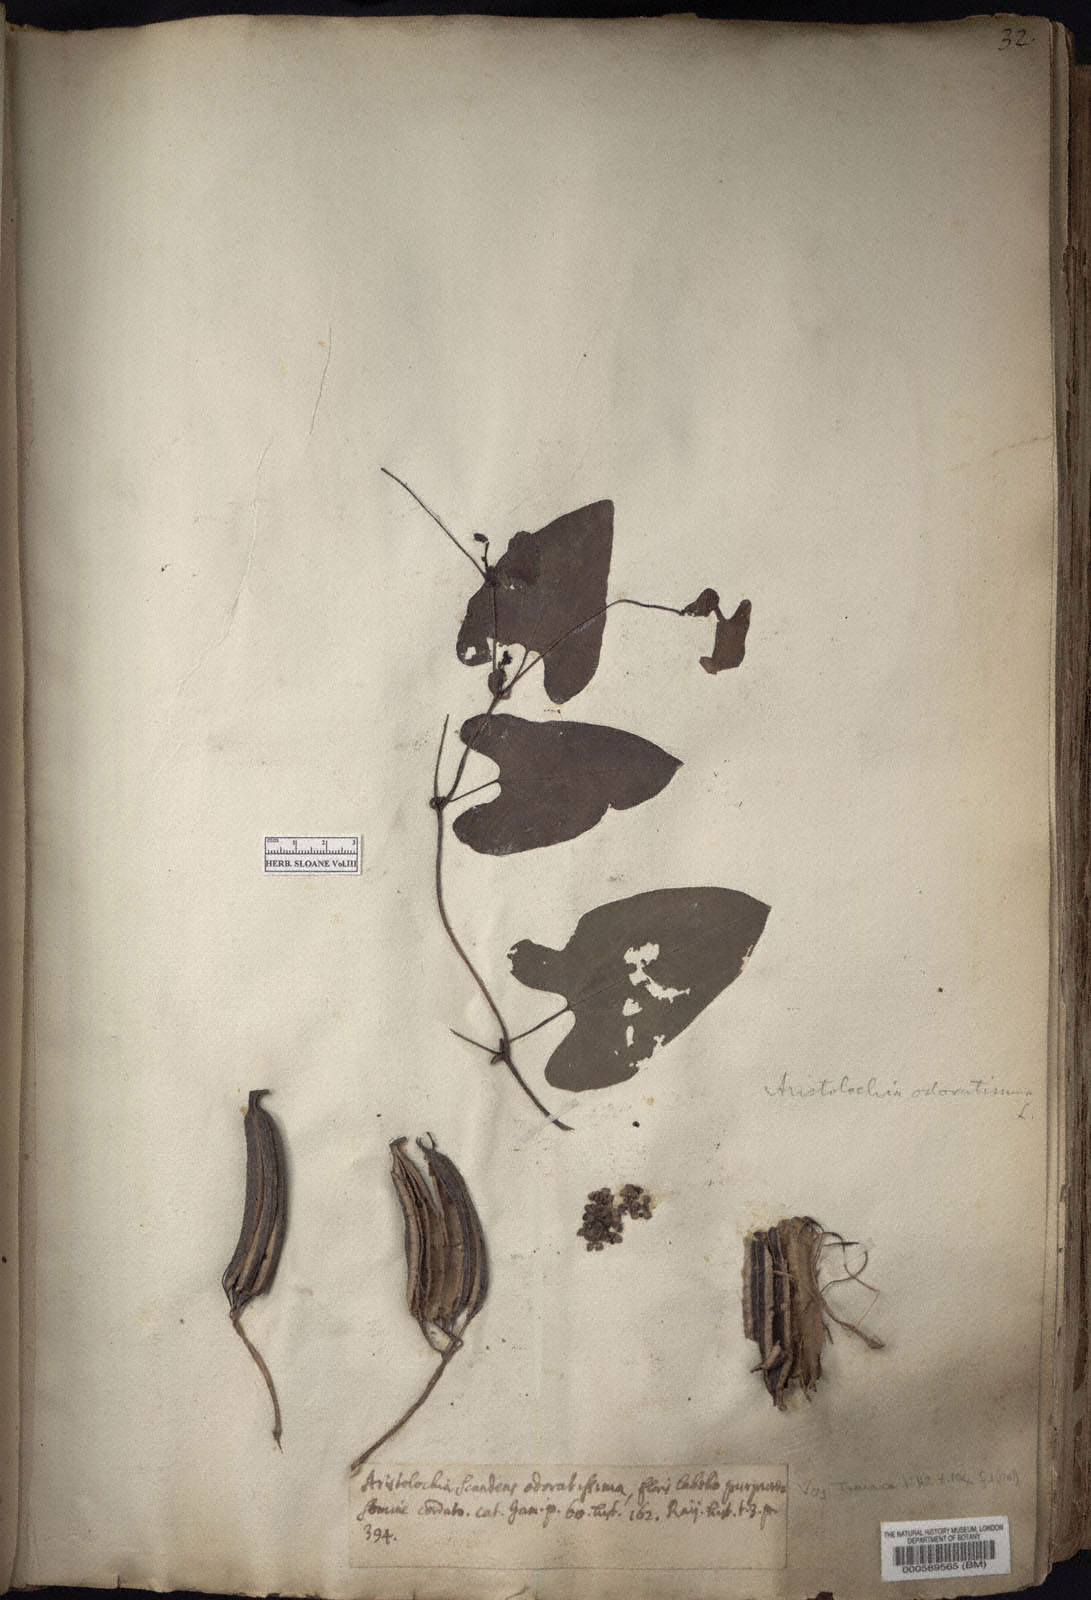 32.
mm 1 2 3
HERB. SLOANE Vol.III
Aristolochia odoratissima
L.
Aristolochia Scandens odoratissima, floris labello purpureo
Semine cordato. cat. Jam. p. 60. hist. 162. Raij. hist. t. 3. p.
394.
Voy Jamaica 1:162. t. 104. f. 1
THE NATURAL HISTORY MUSEUM, LONDON
DEPARTMENT OF BOTANY
000589565 (BM)